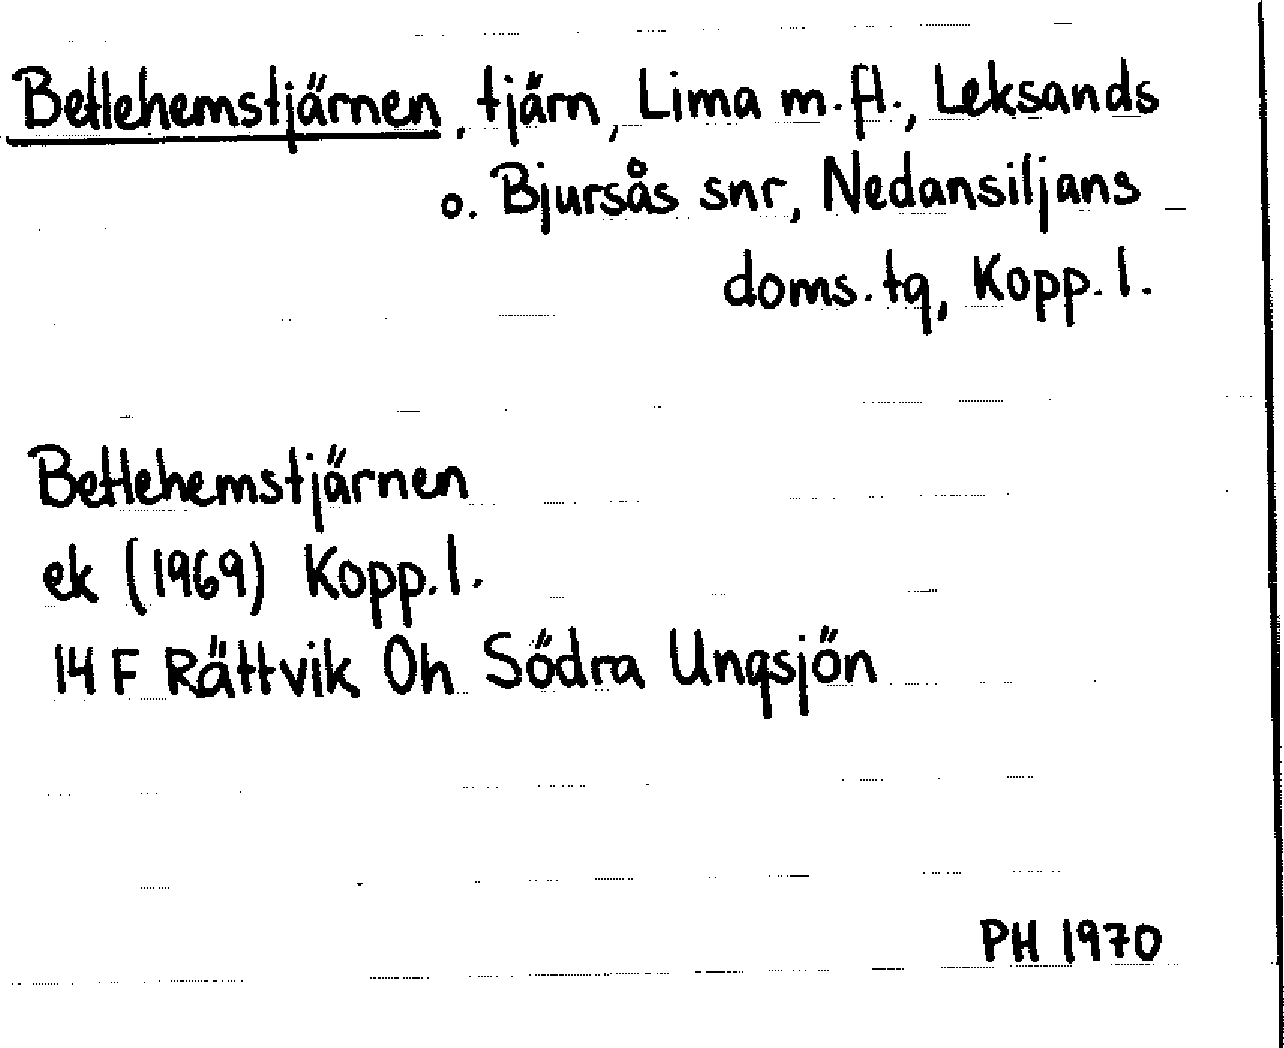 Betlehemstjärnen, tjärn, Lima m.fl., Leksands
o. Bjursås snr, Nedansiljans
doms.tg, Kopp.l.
Betlehemstjärnen
ek (1969) Kopp.l.
14 F Rättvik Oh Södra Ungsjön
PH 1970